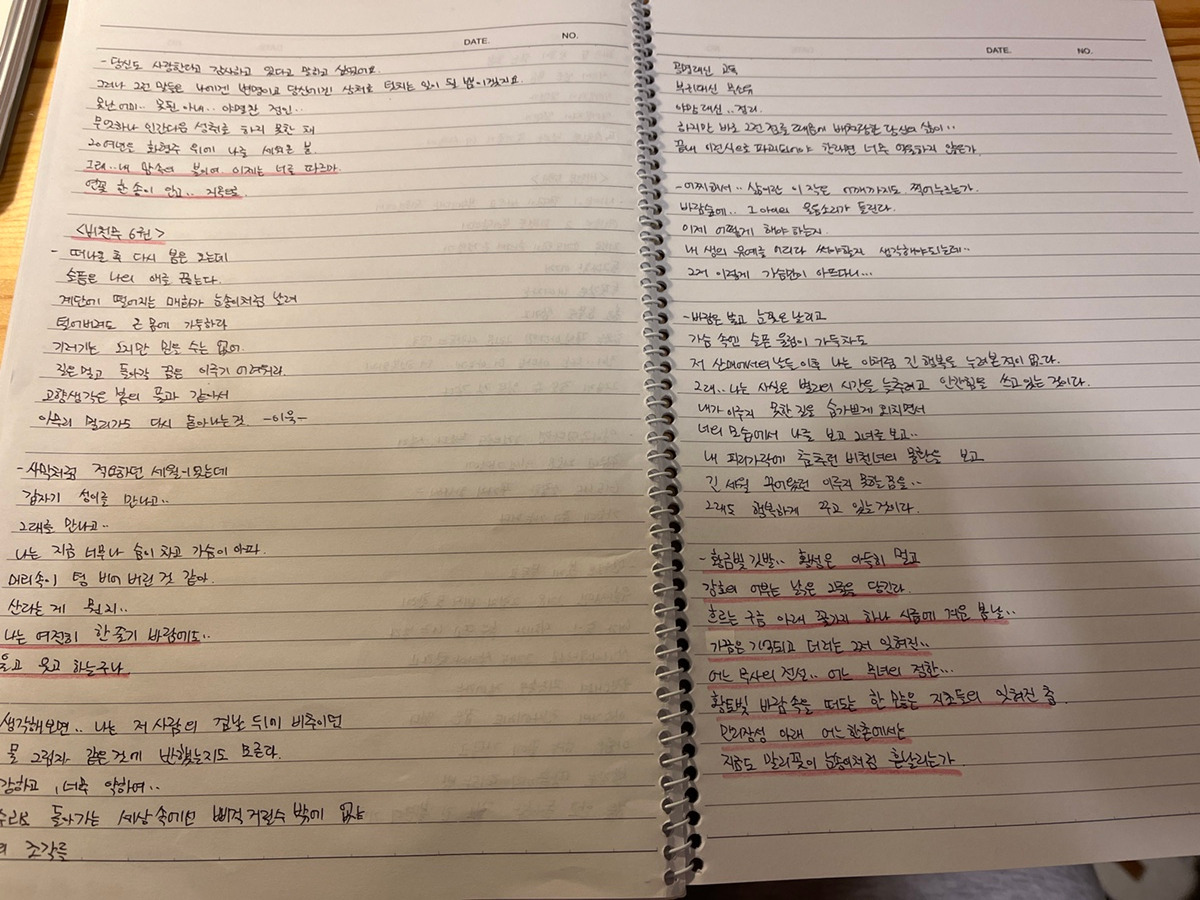 DATE. NO.
- 당신도 사랑한다고 감사하고 있다고 말하고 싶었어요.
그러나 그런 말들은 나에겐 변명이고 당신에겐 상처로 덧치는 일이 될 뿐이겠지요.
못난 어미.. 못된 아내.. 야멸찬 정인..
무엇하나 인간다운 성취를 하지 못한 채
20여년은 화형주 위에 나를 세워둔 봄.
그래.. 내 맘속의 불이여. 이제는 너를 따르마.
연꽃 한 송이 안고.. 지옥으로
<비천무 6권>
- 떠나온 후 다시 봄은 오는데
슬픔은 나의 애를 끊는다.
계단에 떨어지는 매화가 눈송이처럼 날려
털어버려도 온 몸에 가득하라
기러기는 오지만 믿을 수는 없어.
길은 멀고 돌아갈 꿈은 이루기 어려워라.
고향생각은 봄의 풀과 같아서
아무리 멀리가도 다시 돋아나는 것. -이욱-
- 사막처럼 적요하던 세월이었는데
갑자기 성이를 만나고..
그대를 만나고..
나는 지금 너무나 숨이 차고 가슴이 아파.
머리속이 텅 비어 버린 것 같아.
산다는 게 뭔지..
나는 여전히 한 줄기 바람에도..
울고 웃고 하는구나
생각해보면.. 나는 저 사람의 검날 뒤에 비추이던
물 그림자 같은 것에 반했는지도 모른다.
강하고, 너무 약하여..
돌아가는 세상 속에선 삐걱거릴수 밖에 없는
조각을
DATE. NO.
문명대신 고독
부귀대신 무소유
야망 대신.. 정리.
하지만 바로 그런 것들 때문에 버텨왔던 당신의 삶이..
끝내 이런식으로 파괴되어야 한다면 너무 억울하지 않은가.
- 어찌해서.. 삶이란 이 작은 어깨까지도 찍어누르는가.
바람술에.. 그 아이의 울음소리가 들린다.
이제 어떻게 해야 하는지.
내 생의 유예를 어디다 써야할지 생각해야되는데..
그저 이렇게 가슴만이 아프다니...
- 바람은 불고 눈꽃은 날리고
가슴 속엔 슬픈 울림이 가득차도
저 산매에서의 날들 이후 나는 이처럼 긴 행복을 누려본 적이 없다.
그래.. 나는 사실은 별리의 시간을 늦추려고 안간힘을 쓰고 있는 것이다.
내가 이루지 못한 길을 숨가쁘게 되치면서
너의 모습에서 나를 보고 그녀를 보고..
내 피리가락에 춤추던 비천녀의 몽환을 보고
긴 세월 꾸어왔던 이루지 못한 꿈을..
그래도 행복하게 꾸고 있는 것이다.
- 황금빛 깃발.. 황성은 아득히 멀고
강호의 어부는 낡은 그물을 당긴다.
흐르는 구름 아래 꽃가지 하나 시름에 겨운 봄날..
가끔은 기억되고 더러는 그저 잊혀진..
어느 무사의 전설.. 어느 무녀의 정한...
황토빛 바람 속을 떠도는 한 많은 지조들의 잊혀진 춤.
만리장성 아래 어느 한촌에서는
지금도 말리꽃이 눈송이처럼 흩날리는가.